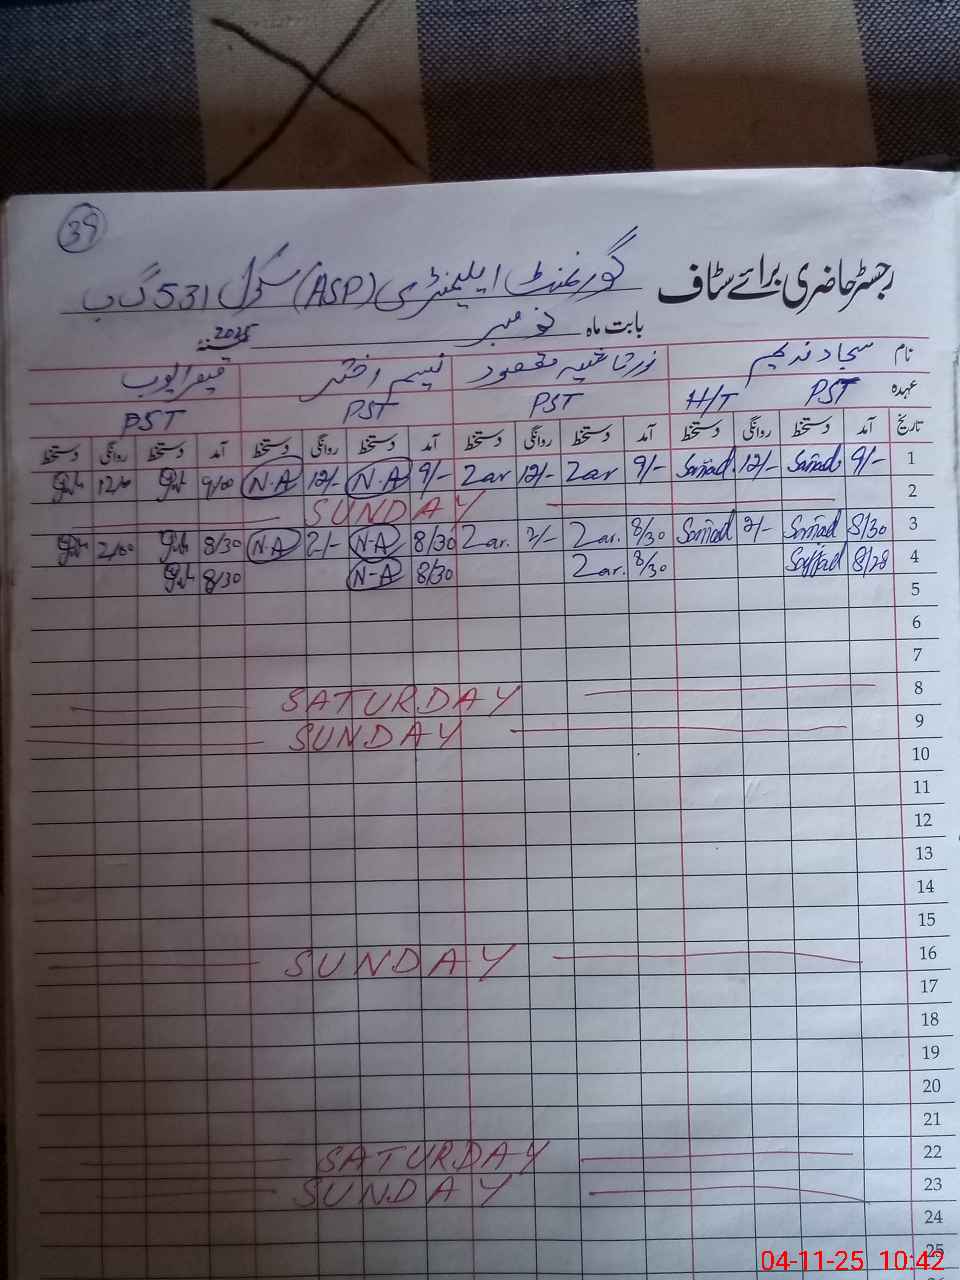 39
رجسٹر حاضری برائے سٹاف گورنمنٹ ایلیمنٹری (ASP) سکول 531 گ ب
بابت ماہ نومبر 2025
نام سجاد ندیم مقصود نسیم اختر ایوب
عہدہ PST H/T PST PST PST
تاریخ آمد دستخط روانگی دستخط آمد دستخط روانگی دستخط آمد دستخط روانگی دستخط آمد دستخط روانگی دستخط
1 9/- 12/- 9/- Zar 12/- Zar 9/- N.A 12/- N.A 9/00 12/00
2 SUNDAY
3 8/30 2/- 8/30 Zar. 2/- Zar. 8/30 N-A 2/- N-A 8/30 2/00
4 8/28 8/30 Zar. 8/30 N-A 8/30
5
6
7
8 SATURDAY
9 SUNDAY
10
11
12
13
14
15
16 SUNDAY
17
18
19
20
21
22 SATURDAY
23 SUNDAY
24
25
04-11-25 10:42